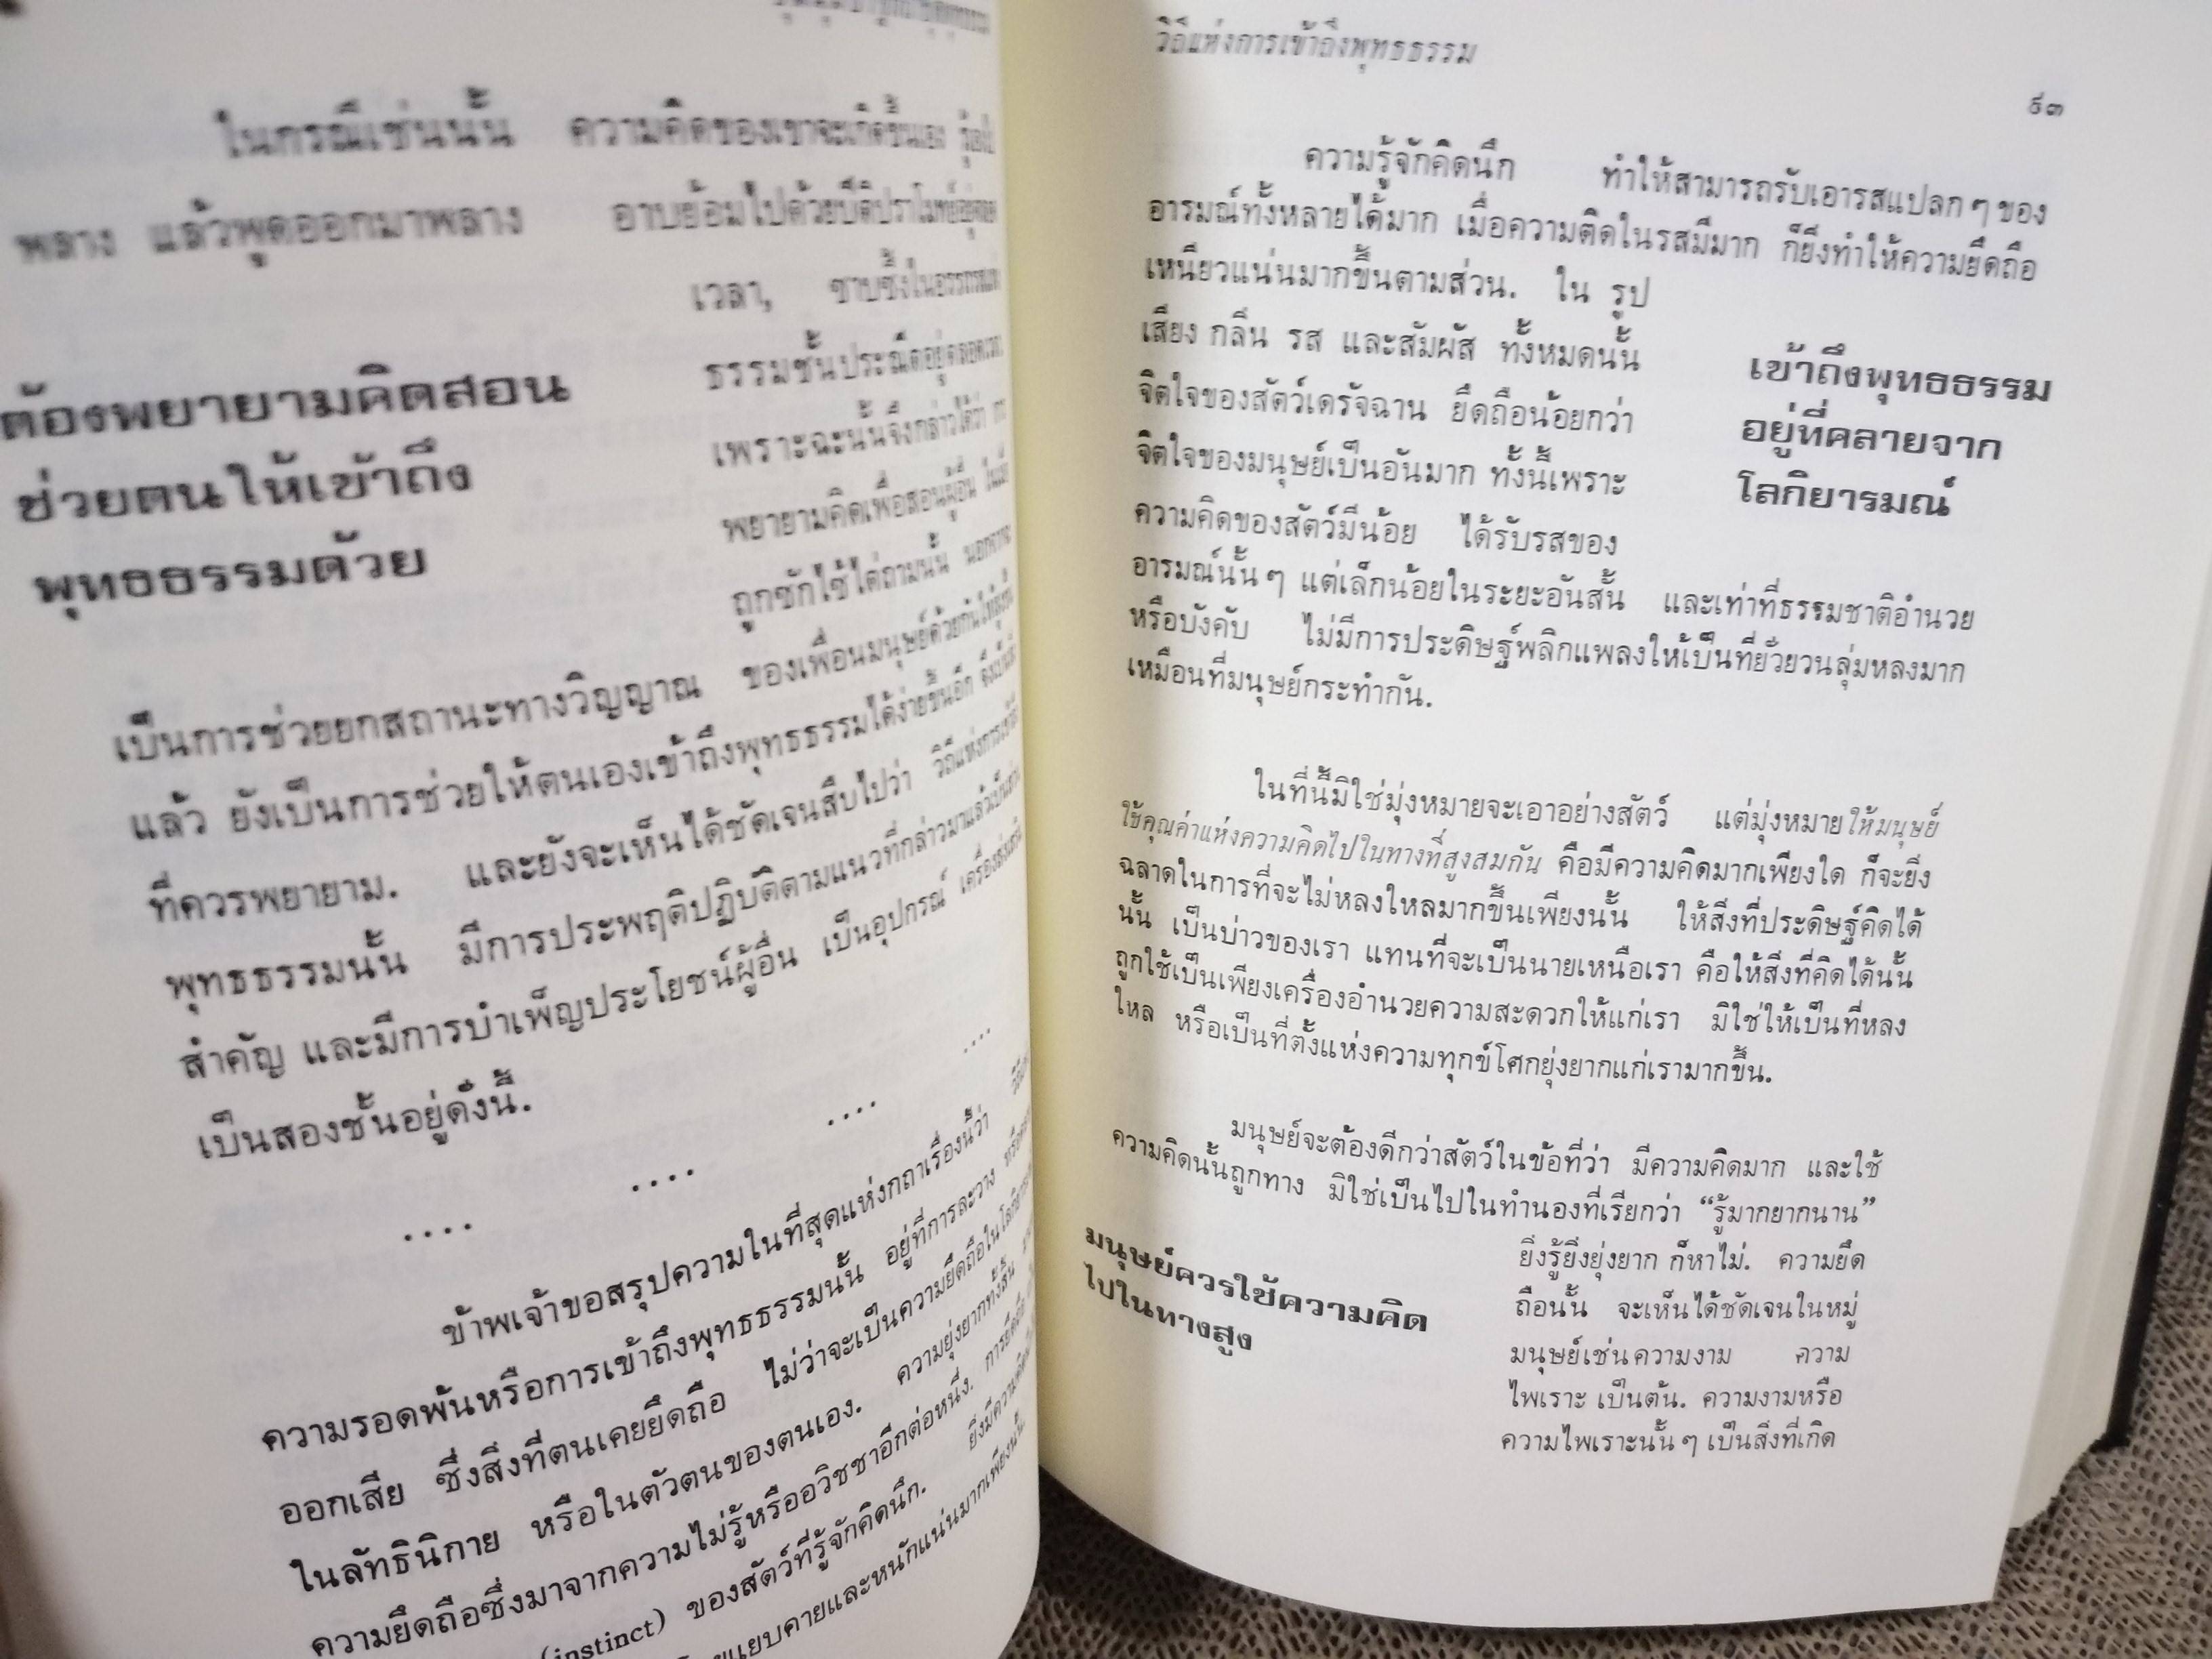 ในกรณีเช่นนั้น ความคิดของเขาจะเกิดขึ้นเอง
พลาง แล้วพูดออกมาพลาง อาบย้อมไปด้วยปีติปราโมทย์อยู่ตลอด
เวลา, ซาบซึ้งในอรรถรสแห่ง
ธรรมชั้นประณีตอยู่ตลอดเวลา.
เพราะฉะนั้นจึงกล่าวได้ว่า การ
พยายามคิดเพื่อสอนผู้อื่น ในเมื่อ
ถูกซักไซ้ไต่ถามนั้น นอกจากจะ
ต้องพยายามคิดสอน
ช่วยตนให้เข้าถึง
พุทธธรรมด้วย
เป็นการช่วยยกสถานะทางวิญญาณ ของเพื่อนมนุษย์ด้วยกันให้สูงขึ้น
แล้ว ยังเป็นการช่วยให้ตนเองเข้าถึงพุทธธรรมได้ง่ายขึ้นอีก จึงเป็นสิ่ง
ที่ควรพยายาม. และยังจะเห็นได้ชัดเจนสืบไปว่า วิถีแห่งการเข้าถึง
พุทธธรรมนั้น มีการประพฤติปฏิบัติตามแนวที่กล่าวมาแล้วเป็นส่วน
สำคัญ และมีการบำเพ็ญประโยชน์ผู้อื่น เป็นอุปกรณ์ เครื่องส่งเสริม
เป็นสองชั้นอยู่ดั่งนี้.
.... .... .... ....
ข้าพเจ้าขอสรุปความในที่สุดแห่งกถาเรื่องนี้ว่า
ความรอดพ้นหรือการเข้าถึงพุทธธรรมนั้น อยู่ที่การละวาง
ออกเสีย ซึ่งสิ่งที่ตนเคยยึดถือ ไม่ว่าจะเป็นความยึดถือในโลกิยารมณ์
ในลัทธินิกาย หรือในตัวตนของตนเอง. ความยุ่งยากทั้งสิ้น
ความยึดถือซึ่งมาจากความไม่รู้หรืออวิชชาอีกต่อหนึ่ง. การยึดถือ
(instinct) ของสัตว์ที่รู้จักคิดนึก. ยิ่งมีความคิด
แยบคายและหนักแน่นมากเพียงนั้น
วิถีแห่งการเข้าถึงพุทธธรรม
๕๓
ความรู้จักคิดนึก ทำให้สามารถรับเอารสแปลก ๆ ของ
อารมณ์ทั้งหลายได้มาก เมื่อความติดในรสมีมาก ก็ยิ่งทำให้ความยึดถือ
เหนียวแน่นมากขึ้นตามส่วน. ใน รูป
เสียง กลิ่น รส และสัมผัส ทั้งหมดนั้น
จิตใจของสัตว์เดรัจฉาน ยึดถือน้อยกว่า
จิตใจของมนุษย์เป็นอันมาก ทั้งนี้เพราะ
ความคิดของสัตว์มีน้อย ได้รับรสของ
เข้าถึงพุทธธรรม
อยู่ที่คลายจาก
โลกิยารมณ์
อารมณ์นั้น ๆ แต่เล็กน้อยในระยะอันสั้น และเท่าที่ธรรมชาติอำนวย
หรือบังคับ ไม่มีการประดิษฐ์พลิกแพลงให้เป็นที่ยั่วยวนลุ่มหลงมาก
เหมือนที่มนุษย์กระทำกัน.
ในที่นี้มิใช่มุ่งหมายจะเอาอย่างสัตว์ แต่มุ่งหมายให้มนุษย์
ใช้คุณค่าแห่งความคิดไปในทางที่สูงสมกัน คือมีความคิดมากเพียงใด ก็จะยิ่ง
ฉลาดในการที่จะไม่หลงใหลมากขึ้นเพียงนั้น ให้สิ่งที่ประดิษฐ์คิดได้
นั้น เป็นบ่าวของเรา แทนที่จะเป็นนายเหนือเรา คือให้สิ่งที่คิดได้นั้น
ถูกใช้เป็นเพียงเครื่องอำนวยความสะดวกให้แก่เรา มิใช่ให้เป็นที่หลง
ใหล หรือเป็นที่ตั้งแห่งความทุกข์โศกยุ่งยากแก่เรามากขึ้น.
มนุษย์จะต้องดีกว่าสัตว์ในข้อที่ว่า มีความคิดมาก และใช้
ความคิดนั้นถูกทาง มิใช่เป็นไปในทำนองที่เรียกว่า “รู้มากยากนาน”
มนุษย์ควรใช้ความคิด
ไปในทางสูง
ยิ่งรู้ยิ่งยุ่งยาก ก็หาไม่. ความยึด
ถือนั้น จะเห็นได้ชัดเจนในหมู่
มนุษย์เช่นความงาม ความ
ไพเราะ เป็นต้น. ความงามหรือ
ความไพเราะนั้น ๆ เป็นสิ่งที่เกิด